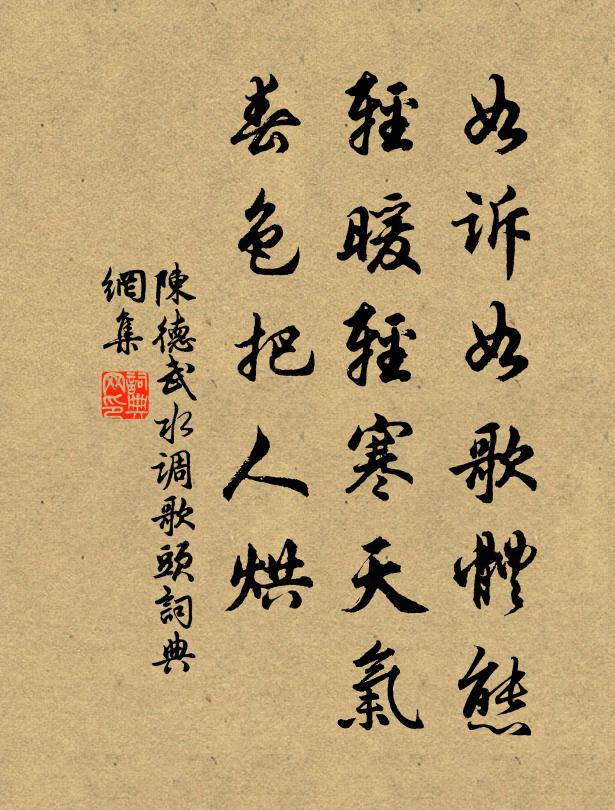 如訴如歌體態
輕暖輕寒天氣
春色把人烘
陳德武水调歌頭詞典
網集
詞典
網印